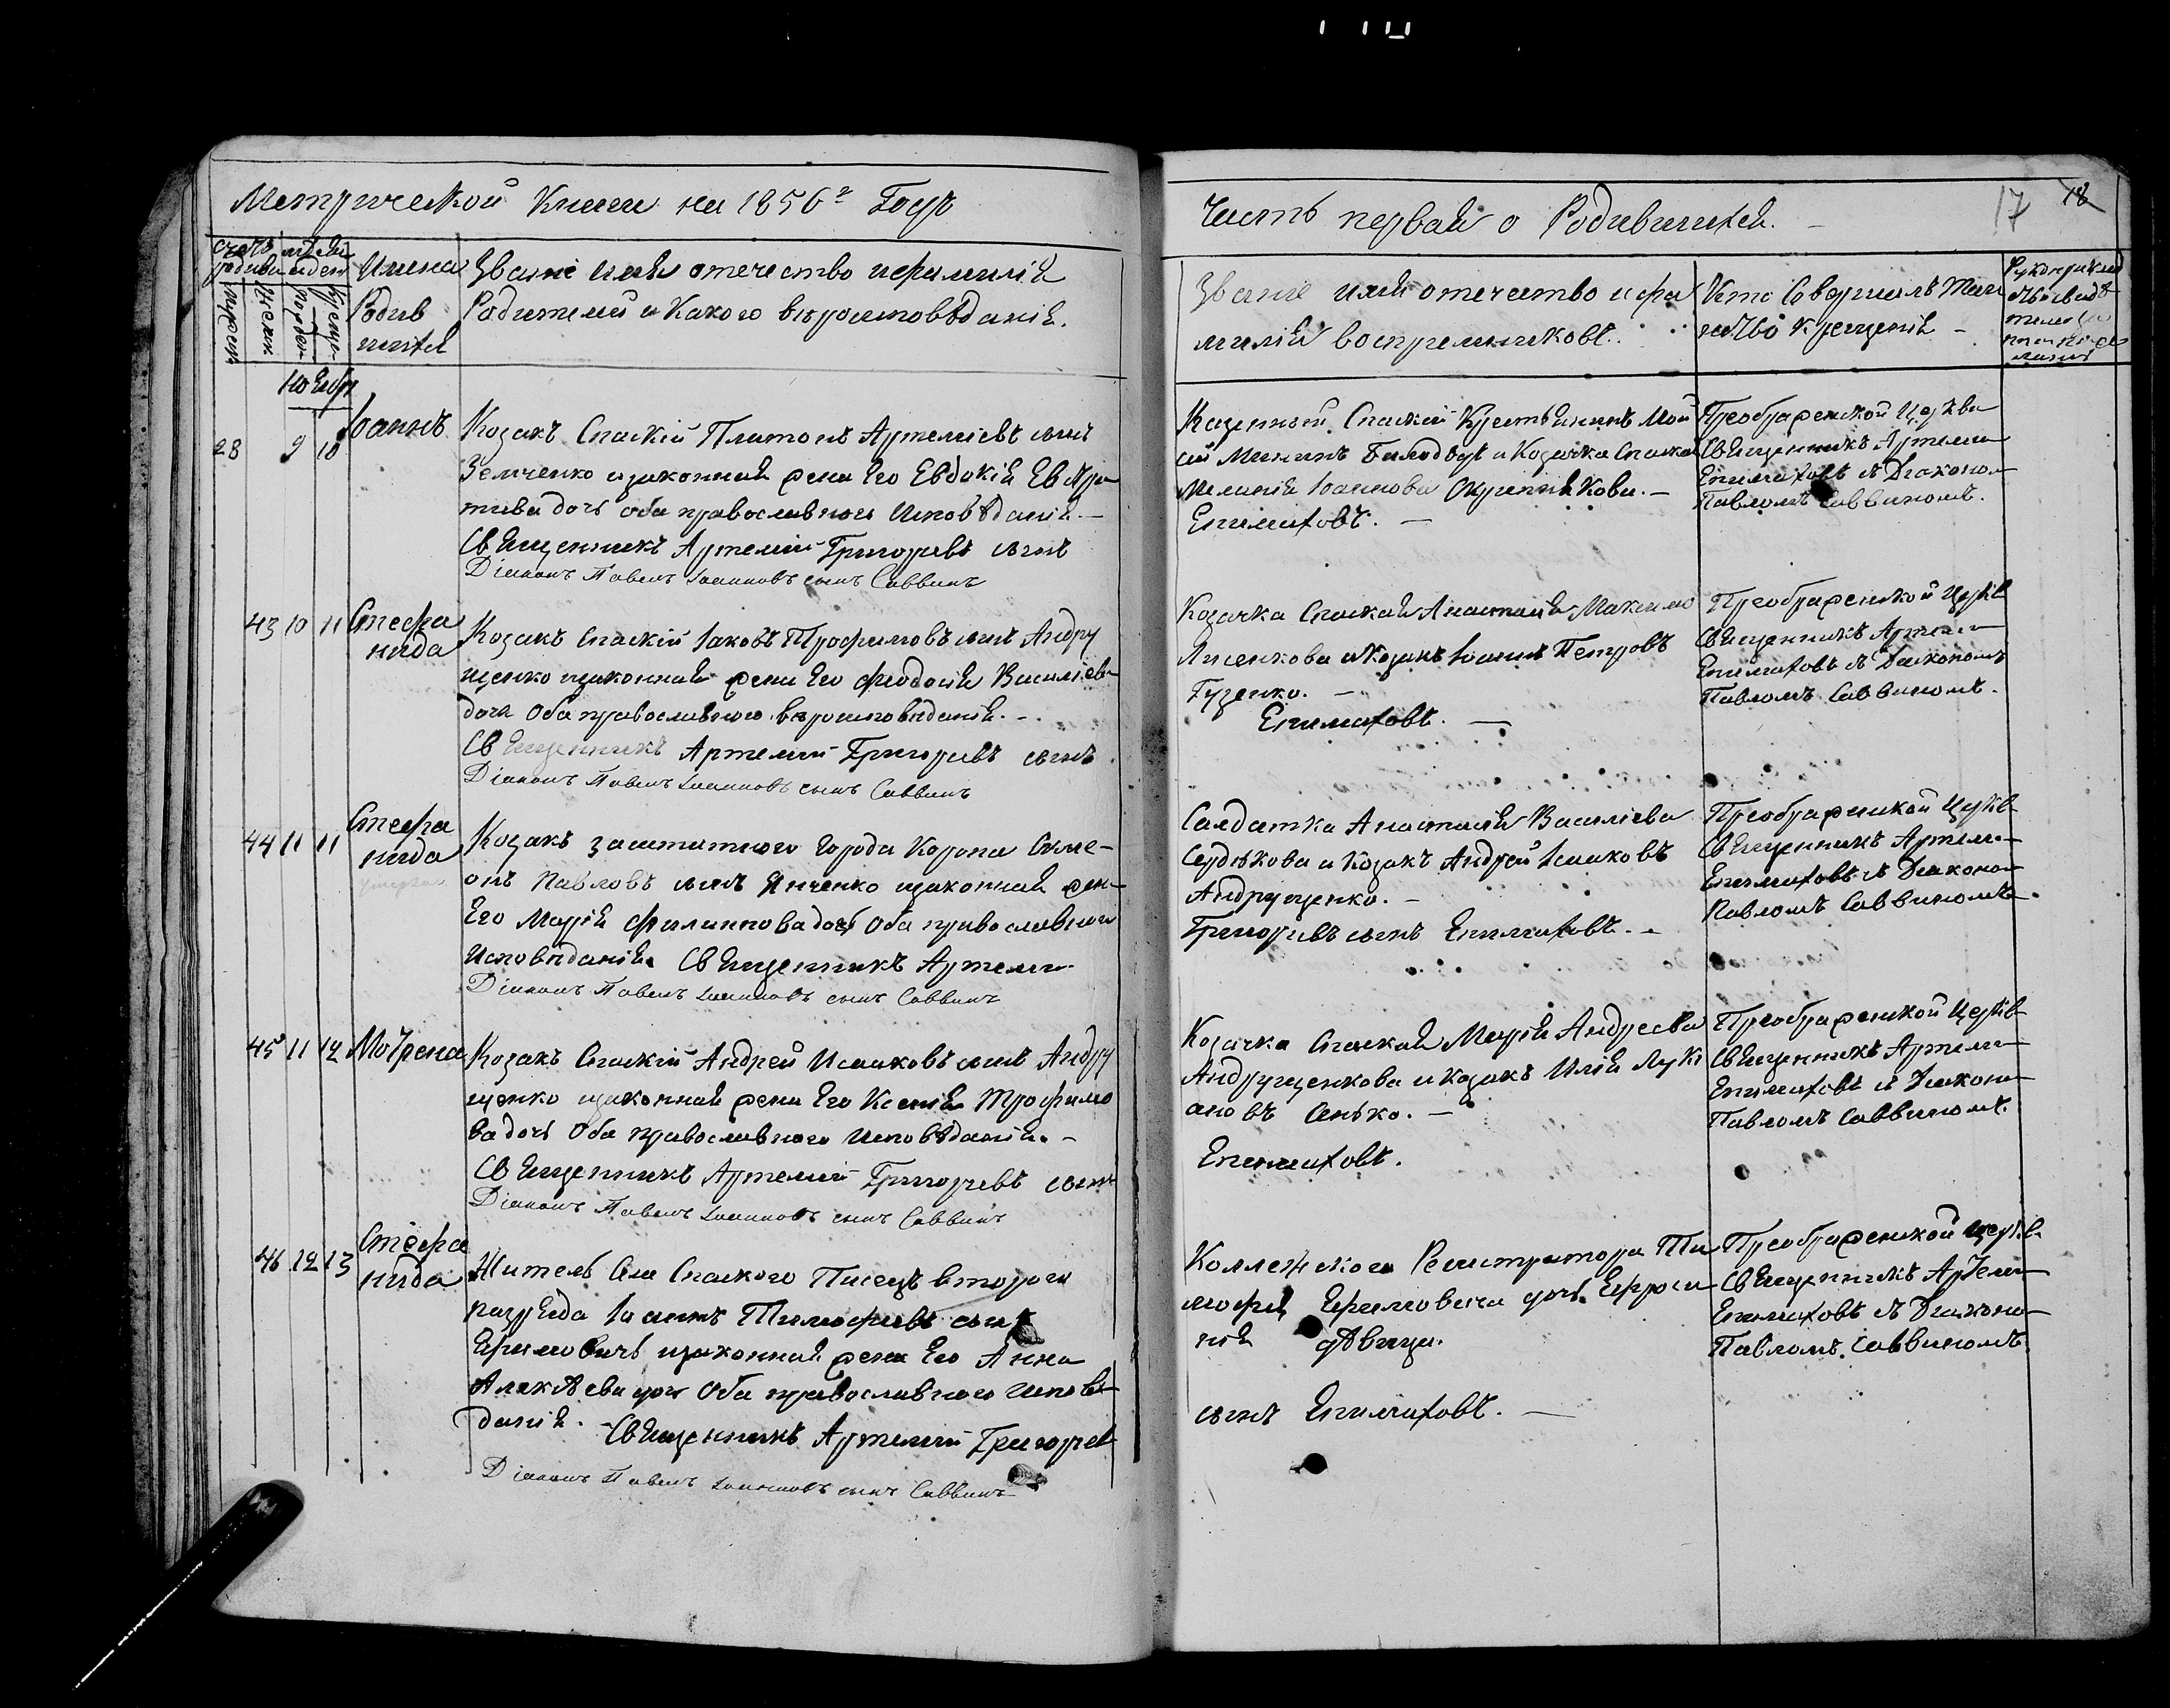 Метрической Книги на 1856й Годъ
Счетъ родивш
мѣсяцъ и день
Имена
Родив
шихся
Званіе имя отечество и фамилія
Родителей и Какого вѣроисповѣданія.
мужеск
женск
рожден
Креще
Ноябр
28 9 10 Іоаннъ
Козакъ Спаскій Платонъ Артеміевъ сынъ
Земченко и законная жена Его Евдокія Ев
това дочь оба православнаго Исповѣданія.—
Священникъ Артемій Григорьевъ сынъ
Діаконъ Павелъ Іоанновъ сынъ Саввинъ
43 10 11 Стефа
нида
Козакъ Спаскій Іаковъ Трофимовъ сынъ Андру
щенко и законная жена Его Феодосія Василіева
дочь Оба православнаго вѣроисповѣданія.—
Священникъ Артемій Григорьевъ сынъ
Діаконъ Павелъ Іоанновъ сынъ Саввинъ
44 11 11 Стефа
нида
умерла
Козакъ заштатного Города Коропа Симе-
онъ Павловъ сынъ Янченко и законная жен
Его Марія Филиппова дочь Оба православнаго
Исповѣданія. Священникъ Артеми
Діаконъ Павелъ Іоанновъ сынъ Саввинъ
45 11 12 Мотрена
Козакъ Спаскій Андрей Исааковъ сынъ Андру
щенко и законная жена Его Ксенія Трофимо
ва дочь Оба православнаго Исповѣданія.—
Священникъ Артемій Григорьевъ сынъ
Діаконъ Павелъ Іоанновъ сынъ Саввинъ
46 12 13 Стефа
нида
Житель Села Спаского Писецъ второго
разряда Іоаннъ Тимофіевъ сынъ
Ефимовичъ и законная жена Его Анна
Алексѣева дочь Оба православнаго Исповѣ
данія.—Священникъ Артемій Григорьев
Діаконъ Павелъ Іоанновъ сынъ Саввинъ
Часть первая о Родившихся.
17 18
Званіе имя отечество и фа
милія воспріемниковъ.
Кто совершалъ Таи
нство крещенія
Рукоприклад
ство свидѣ
телей
Казенный Спаскій Крестьянинъ Мои
сей Мининъ Билодѣдъ и Козачка Спаская
Меланія Іоаннова .—
Епимаховъ.—
Преображенской Церкви
Священникъ Артемій
Епимаховъ съ Діакономъ
Павломъ Саввиномъ.
Козачка Спаская Анастасія Максимо
Лисенкова и Козакъ Іоаннъ Петровъ
Гузенко.—
Епимаховъ.—
Преображенской Церкв
Священникъ Артеми
Епимаховъ съ Діакономъ
Павломъ Саввиномъ.
Салдатка Анастасія Василіева
Сердюкова и Козакъ Андрей Исааковъ
Андрущенко.—
Григорьевъ сынъ Епимаховъ.—
Преображенской Церкв
Священникъ Артеми
Епимаховъ съ Діаконо
Павломъ Саввиномъ.
Козачка Спаская Марія Андреева
Андрущенкова и Козакъ Илія Луки
ановъ Сенько.—
Епимаховъ.
Преображенской Церкв
Священникъ Артеми
Епимаховъ съ Діаконо
Павломъ Саввиномъ.
Коллежскаго Регистратора Ти
мофея Ефимовича дочь Ефроси
нія дѣвица.
сынъ Епимаховъ.—
Преображенской Церкв
Священникъ Артеми
Епимаховъ съ Діаконо
Павломъ Саввиномъ